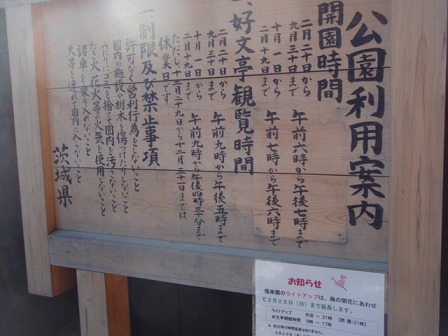 公園利用案内
開園時間
二月二十日から
九月三十日まで
午前六時から午後七時まで
十月一日から
二月十九日まで
午前七時から午後六時まで
一、好文亭観覧時間
二月二十日から
九月三十日まで
午前九時から午後五時まで
十月一日から
二月十九日まで
午前九時から午後四時三十分まで
休業日です
一、制限及び禁止事項
許可なく営利行為をしないこと
園内の施設、樹木を傷つけたりしないこと
みだりにゴミを捨て園内を汚さないこと
たき火、花火等の火気を使用しないこと
諸車を乗り入れないこと
茨城県
お知らせ
偕楽園のライトアップは、梅の開花にあわせ
て3月25日(日)まで延長します。
ライトアップ